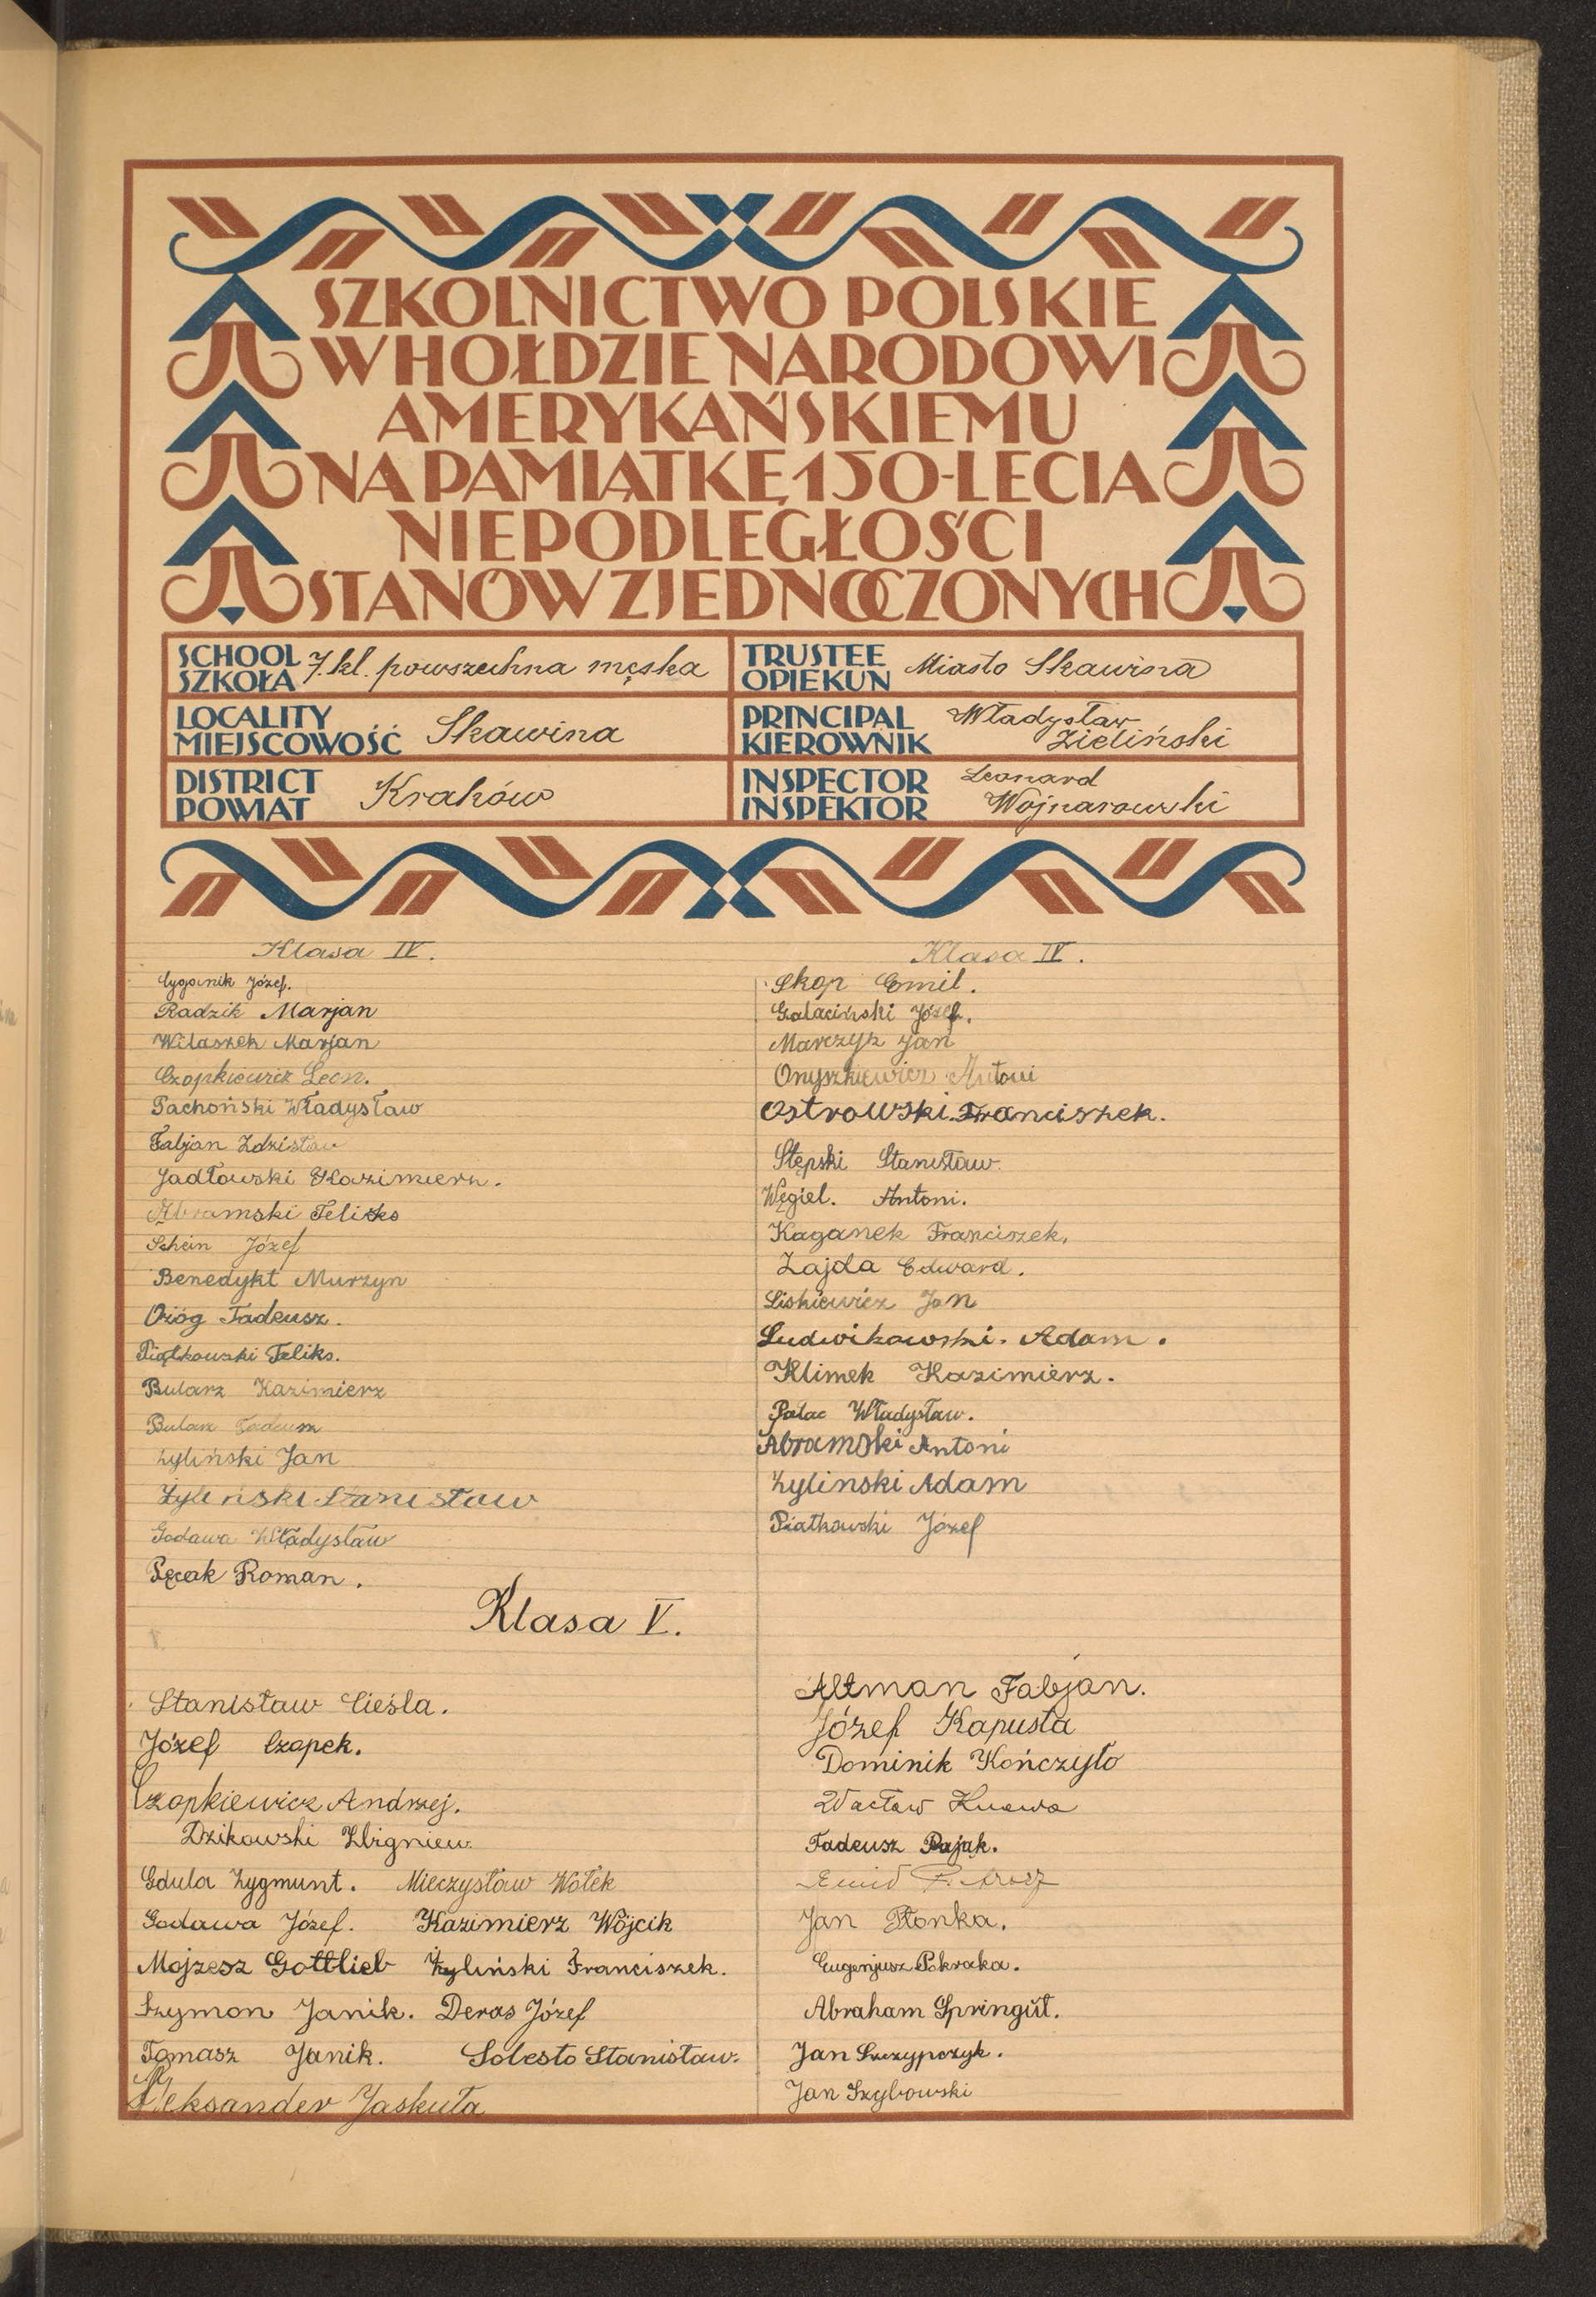 SZKOLNICTWO POLSKIE
W HOŁDZIE NARODOWI
AMERYKAŃSKIEMU
NA PAMIĄTKĘ 150-LECIA
NIEPODLEGŁOŚCI
STANÓW ZJEDNOCZONYCH
SCHOOL
SZKOŁA
7. kl. powszechna męska
TRUSTEE
OPIEKUN
Miasto Skawina
LOCALITY
MIEJSCOWOŚĆ
Skawina
PRINCIPAL
KIEROWNIK
Władysław
Zieliński
DISTRICT
POWIAT
Kraków
INSPECTOR
INSPEKTOR
Leonard
Wojnarowski
Klasa IV.
Cyganik Józef.
Radzik Marjan
Wilaszek Marjan
Czopkiewicz Leon.
Pachoński Władysław
Fabjan Zdzisław
Jadłowski Kazimierz.
Abramski Felizks
Schein Józef
Benedykt Murzyn
Ożóg Tadeusz.
Piątkowski Feliks.
Bularz Kazimierz
Bularz Tadeusz
Żyliński Jan
Żyliński Stanisław
Godawa Władysław
Pęcak Roman.
Klasa IV.
Skop Emil.
Galaciński Józef.
Marczyk Jan
Onyszkiewicz Antoni
Ostrowski. Franciszek.
Stępski Stanisław.
Węgiel. Antoni.
Kaganek Franciszek.
Zajda Edward.
Liskiewicz Jan
Ludwikowski. Adam.
Klimek Kazimierz.
Pałac Władysław.
Abramski Antoni
Zylinski Adam
Piatkowski Józef
Klasa V.
Stanisław Cieśla.
Józef Czopek.
Czopkiewicz Andrzej.
Dzikowski Zbigniew.
Gdula Zygmunt. Mieczysław Wołek
Godawa Józef. Kazimierz Wójcik
Mojzesz Gottlieb Żyliński Franciszek.
Szymon Janik. Deras Józef
Tomasz Janik. Solesto Stanisław.
Aleksander Jaskuła
Altman Fabjan.
Józef Kapusta
Dominik Kończyło
Wacław
Tadeusz Pająk.
Emil
Jan Płonka.
Eugenjusz Pokraka.
Abraham Springut.
Jan Szczypczyk.
Jan Szybowski